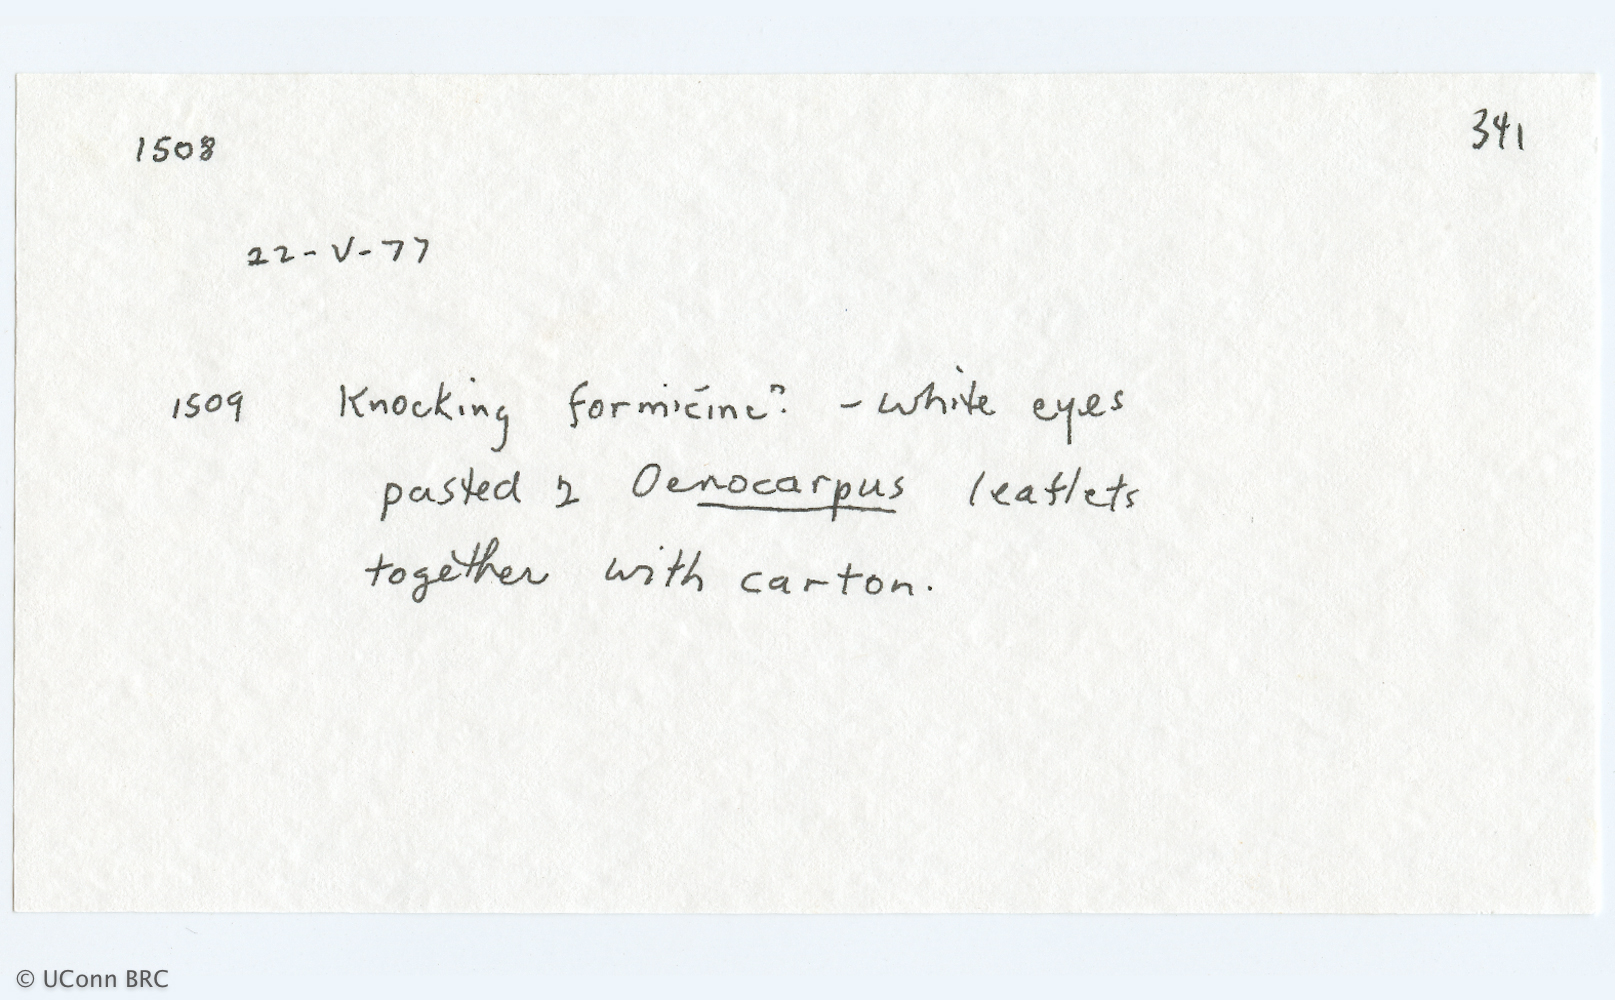 1508
341
22-V-77
1509 Knocking formicine? - white eyes
pasted 2 Oenocarpus leaflets
together with carton.
© UConn BRC